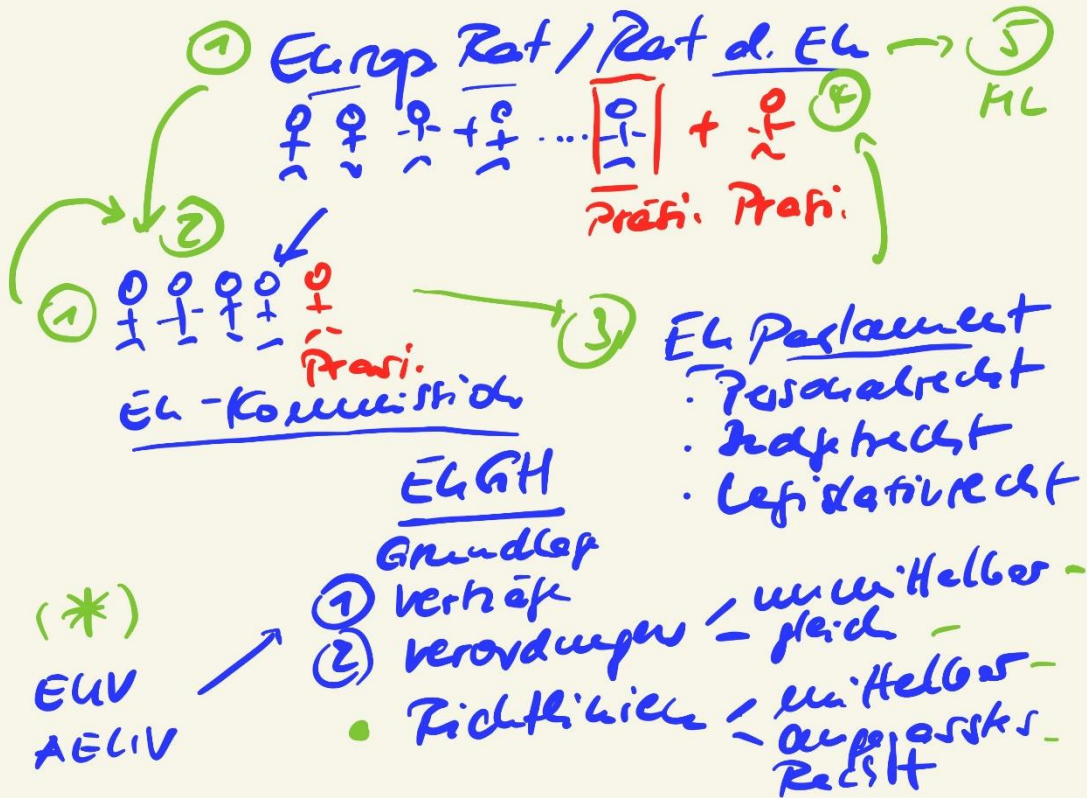 ① Europ Rat / Rat d. EU → ⑤
ML
+ .... + ④
Präsi. Präsi.
②
① Präsi.
EU-Kommission
③
EU Parlament
· Personalrecht
· Budgetrecht
· Legislativrecht
EuGH
Grundlage
① Verträge
② Verordnungen < unmittelbar -
- gleich -
• Richtlinien < mittelbar -
- angepasstes -
Recht
(*)
EUV
AEUV